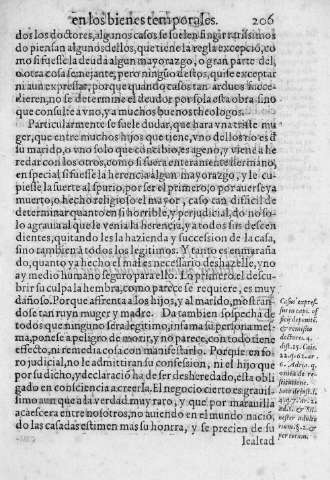 en los bienes temporales. 206
dos los doctores, algunos casos se suelen fingir rarissimos
do piensan algunos dellos, que tiene la regla excepciõ, co
mo si fuesse la deuda algun mayorazgo, o gran parte del,
o otra cosa semejante, pero ningũo destos, quise exceptar
ni aun expressar, porque quando casos tan arduos succe-
dieren, no se determine el deudor por sola esta obra sino
que consulte a vno, ya muchos buenos theologos.
Particularmente se suele dudar, que hara vna triste mu
ger, que entre muchos hijos que tiene, vno dellos no es d̃
su marido, o vno solo que concibio, es ageno, y viene a he
redar con los otros, como si fuera enteramente hermano,
en special si fuesse la herencia algun mayorazgo, y le cu-
piesse la suerte al spurio, por ser el primero, o por auerse ya
muerto, o hecho religioso el mayor, caso tan difficil de
determinar quanto en si horrible, y perjudicial, do no so-
lo agrauia al que le venia la herencia, y a todos sus descen
dientes, quitando les la hazienda y succession de la casa,
sino tambien a todos los legitimos. Y tanto es enmaraña
do, quanto ya hecho el mal es necesario deshazelle, y no
ay medio humano seguro para ello. Lo primero el descu-
brir su culpa la hembra, como parece se requiere, es muy
dañoso. Porque affrenta a los hijos, y al marido, mostran
dose tan ruyn muger y madre. Da tambien sospecha de
todos que ninguno sera legitimo, infama su persona mes-
ma, ponese a peligro de morir, y no parece, con todo tiene
effecto, ni remedia cosa con manifestarlo. Porque en fo-
ro judicial, no le admittiran su confession, ni el hijo que
por su dicho, y declaració ha de ser desheredado, esta obli
gado en consciencia a creerla. El negocio cierto es grauis-
simo aun que a la verdad muy raro, y que por marauilla
acaescera entre nosotros, no auiendo en el mundo nació,
do las casadas estimen mas su honrra, y se precien de su
lealtad